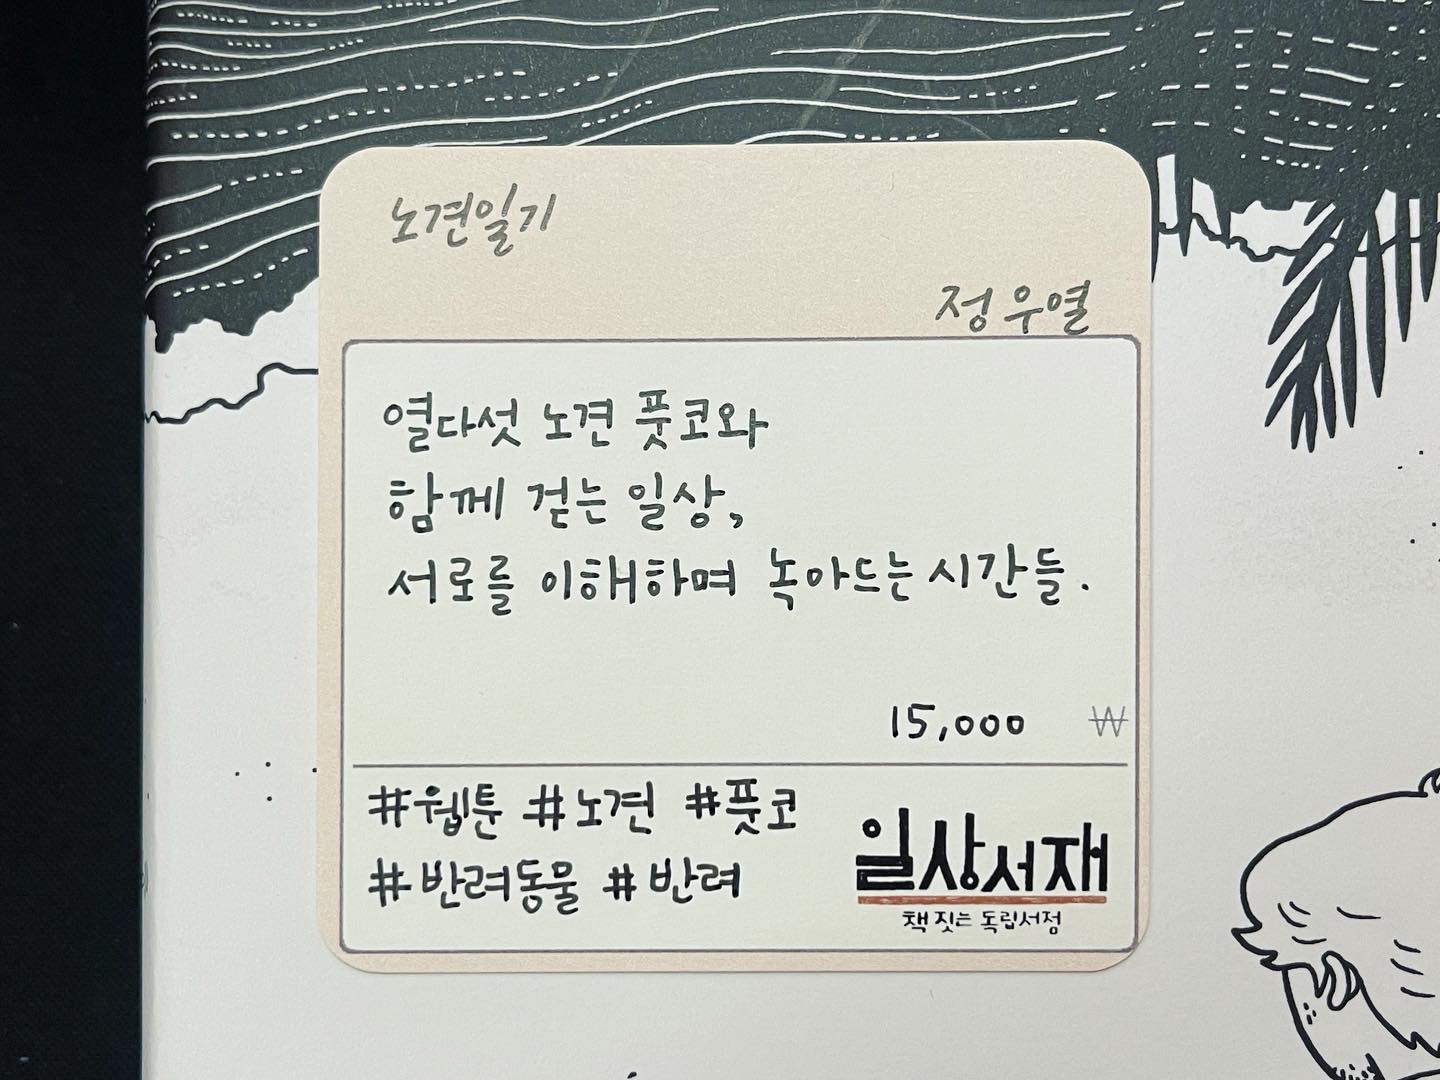 노견일기
정우열
열다섯 노견 풋코와
함께 걷는 일상,
서로를 이해하며 녹아드는 시간들.
15,000 ₩
#웹툰 #노견 #풋코
#반려동물 #반려
일상서재
책 짓는 독립서점